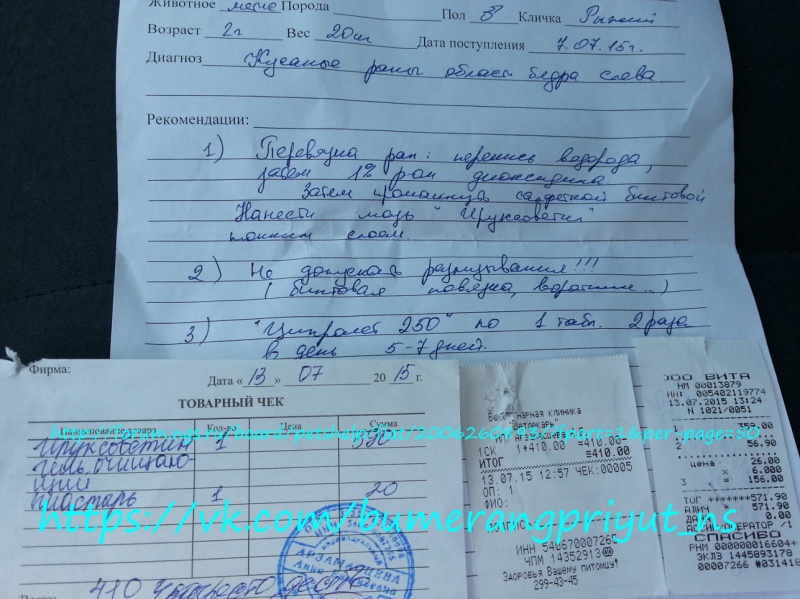 Животное метис Порода Пол ♂ Кличка Рыжий
Возраст 2г Вес 20кг Дата поступления 7.07.15г.
Диагноз Кусаные раны области бедра слева
Рекомендации:
1) Перевязка ран: перекись водорода,
затем 1% р-ом диоксидина
Затем промакнуть салфеткой бинтовой
Нанести мазь "Ируксоветин"
тонким слоем.
2) Не допускать разлизывания!!!
(бинтовая повязка, воротник..)
3) "Ципролет 250" по 1 табл. 2 раза
в день 5-7 дней.
Фирма:
Дата «13» 07 2015 г.
ТОВАРНЫЙ ЧЕК
Наименование товара Кол-во Цена Сумма
Ируксоветин 1 390
гель очищаю-
щий
пластырь 1 20
410
АРЗАМАЦЕВА
Ветеринарная клиника
1СК 1*410.00 ≡410.00
ИТОГ ≡410.00
13.07.15 12:57 ЧЕК:00005
ОП: 1
ИНН 546670007265
ЧПМ 14352913
Здоровья Вашему питомцу!
299-43-45
ООО ВИТА
НМ 00013879
ИНН: 005402119774
13.07.2015 13:24
N 1021/0051
1 359.00
2 56.90
цена 26.00
х 6.000
3 = 156.00
ТОГ *******571.90
АЛИЧ 571.90
ДАЧА 0.00
АССИР/ОПЕРАТОР /1
СПАСИБО
РНМ 000000016604*
ЭКЛЗ 1445893178
00007266 #031418
https://vk.com/bumerangpriyut_ns